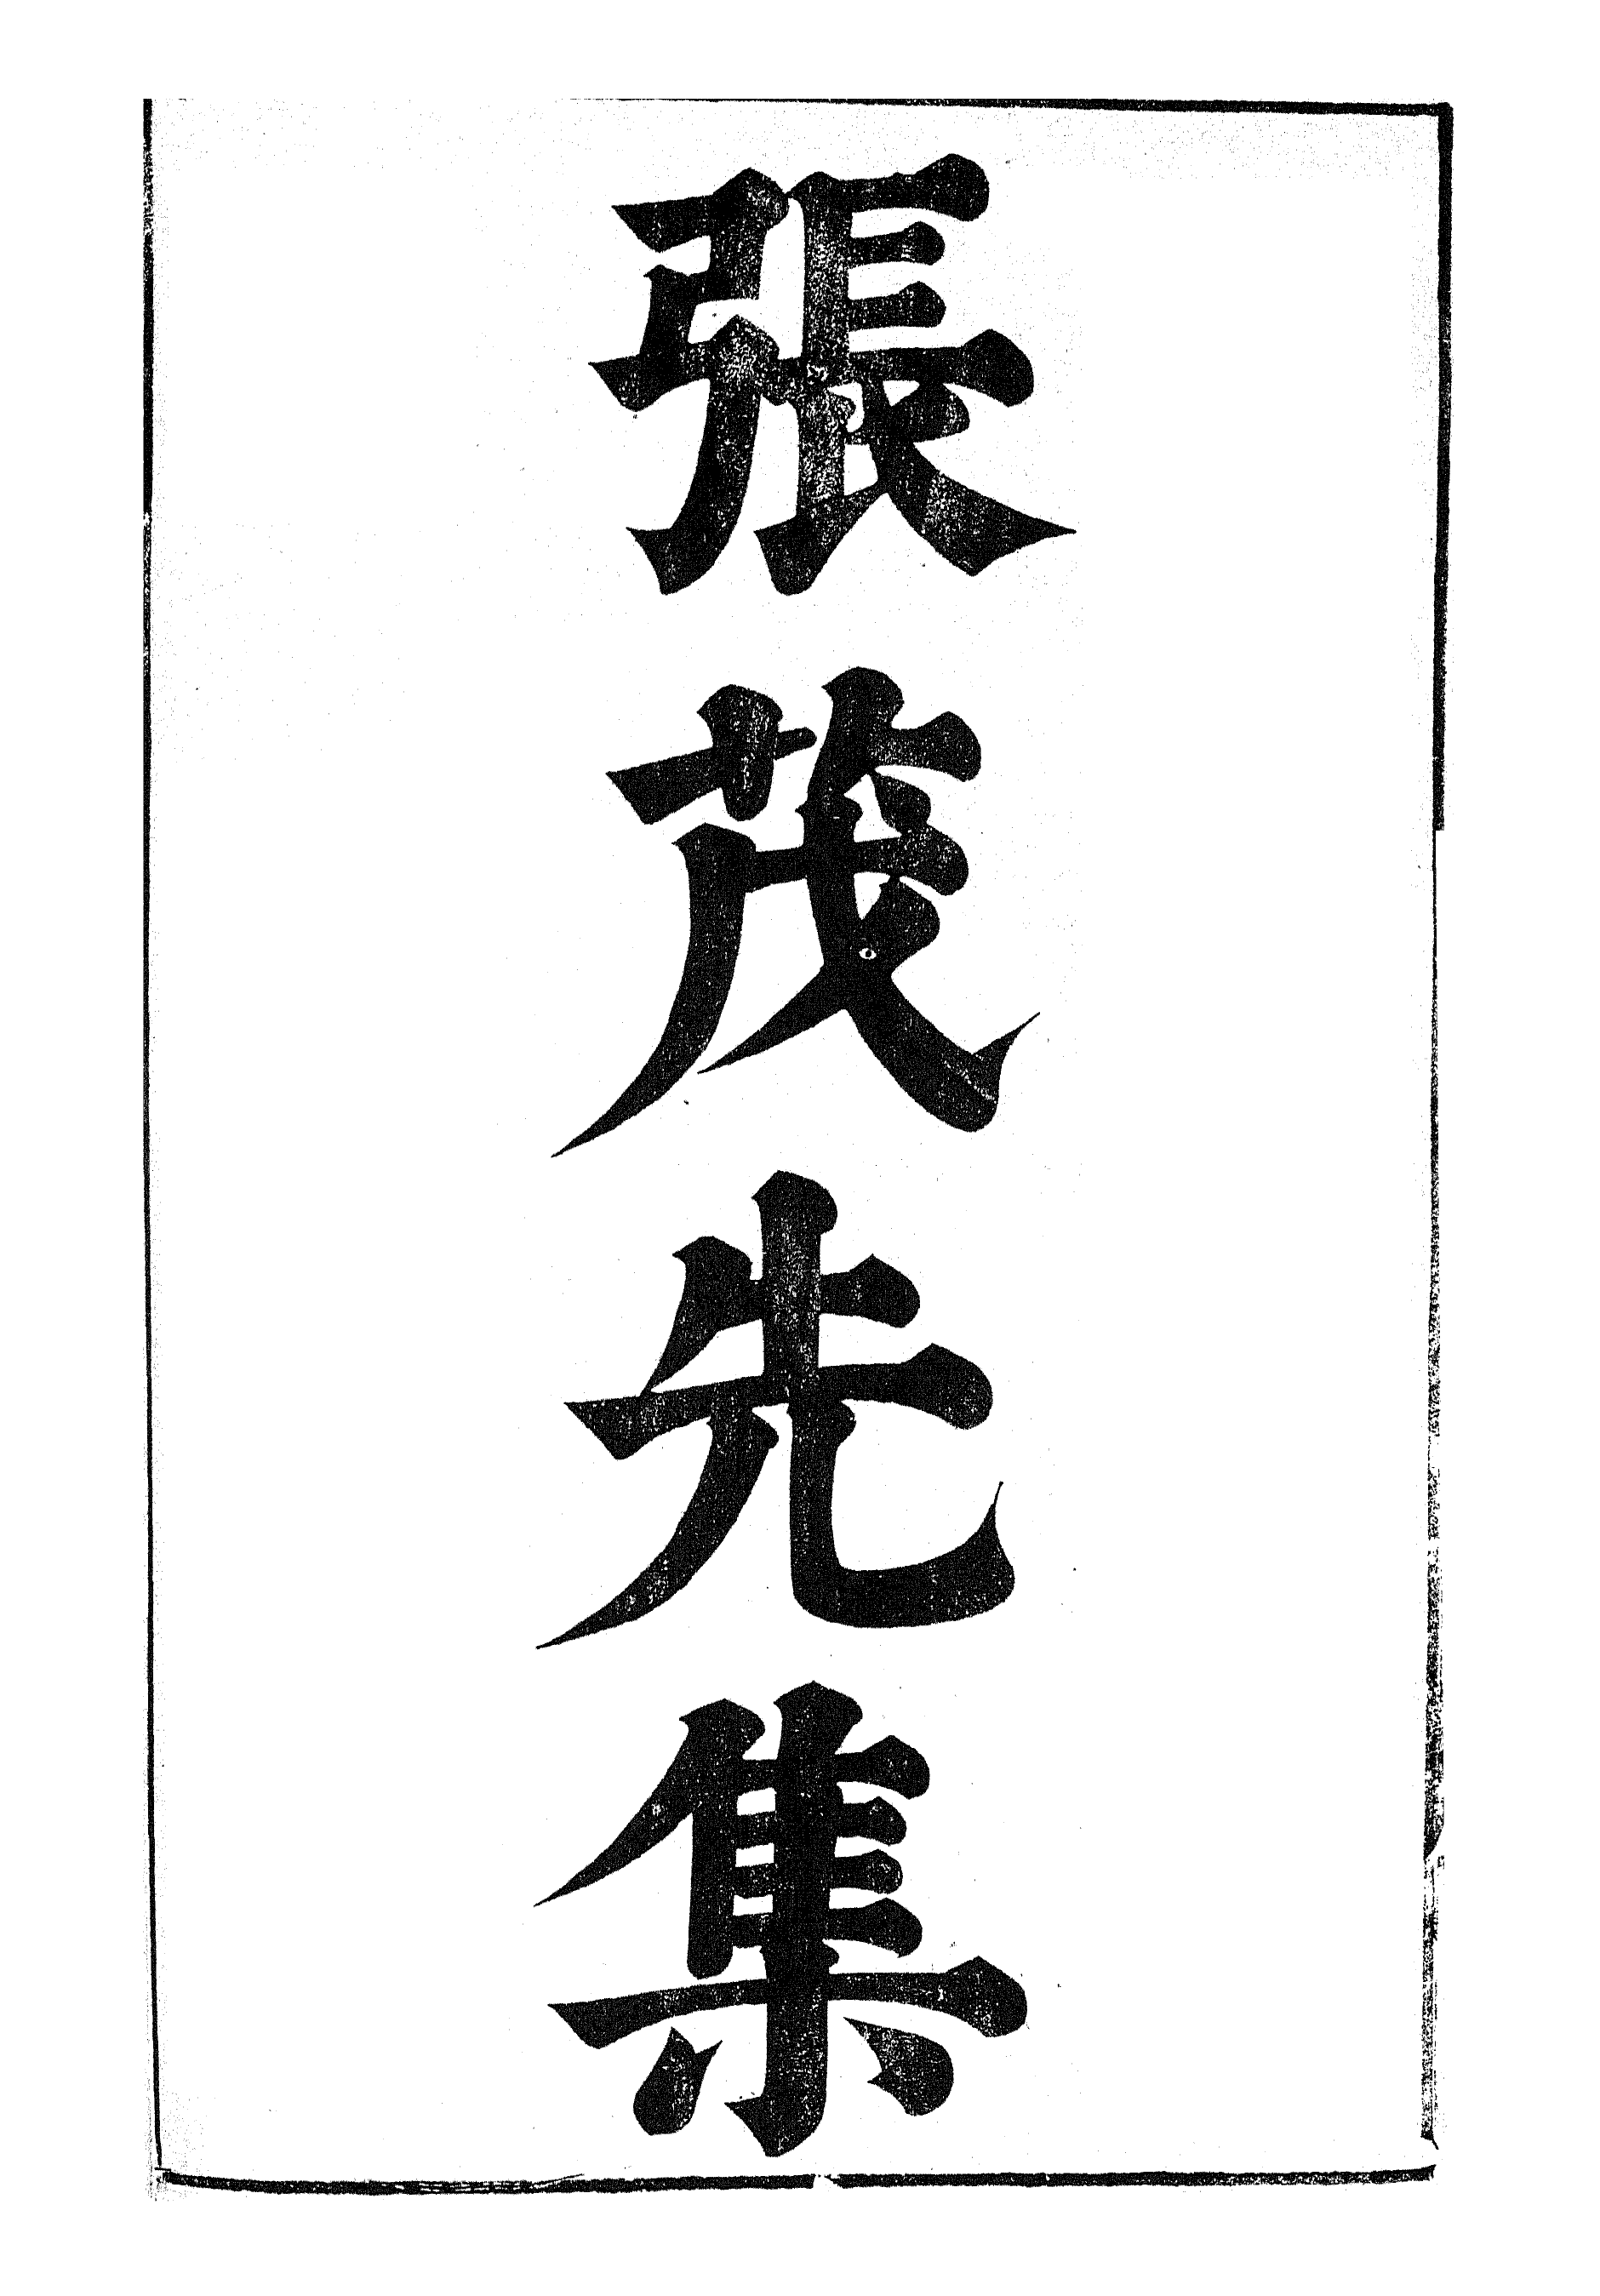 張茂先集